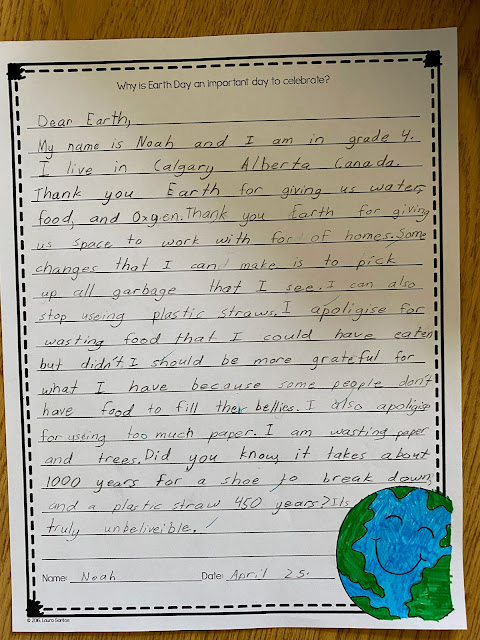 Why is Earth Day an important day to celebrate?
Dear Earth,
My name is Noah and I am in grade 4.
I live in Calgary Alberta Canada.
Thank you Earth for giving us water,
food, and Oxgien. Thank you Earth for giving
us space to work with for of homes. Some
changes that I can make is to pick
up all garbage that I see. I can also
stop useing plastic straws. I apoligise for
wasting food that I could have eaten
but didn't. I should be more grateful for
what I have because some people don't
have food to fill their bellies. I also apoligise
for useing too much paper. I am wasting paper
and trees. Did you know, it takes about
1000 years for a shoe to break down,
and a plastic straw 450 years? Its
truly unbeliveible.
Name: Noah Date: April 25.
© 2016, Laura Santos